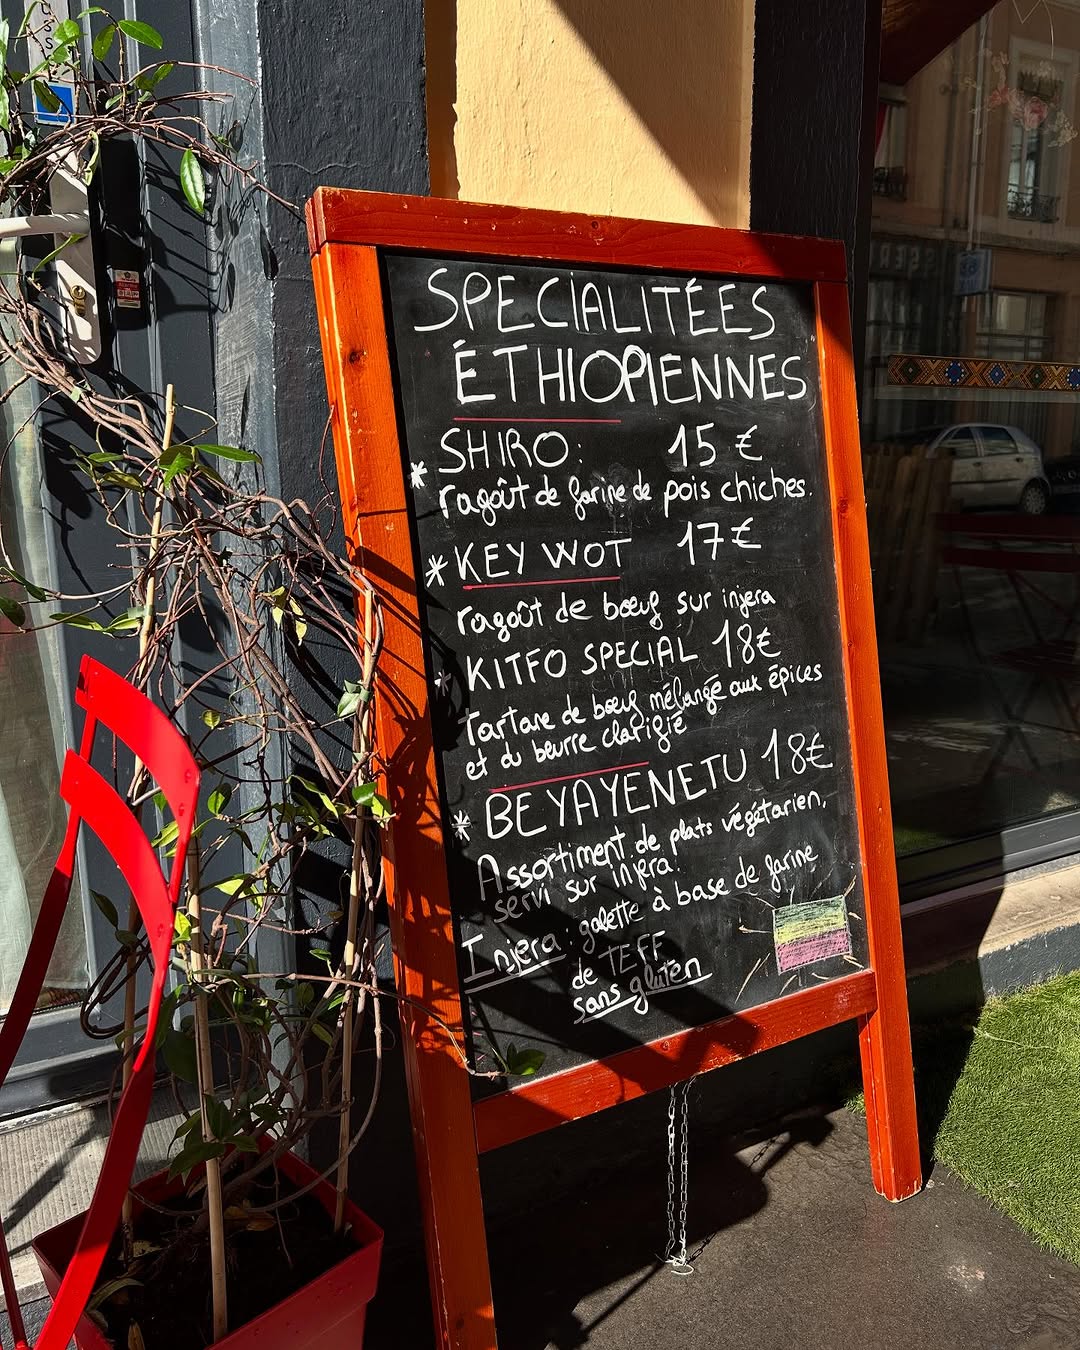 SPECIALITÉES
ÉTHIOPIENNES
* SHIRO: 15 €
ragoût de farine de pois chiches.
* KEY WOT 17€
ragoût de bœuf sur injera
* KITFO SPECIAL 18€
Tartare de bœuf mélangé aux épices
et du beurre clarifié
* BEYAYENETU 18€
Assortiment de plats végétarien,
servi sur injera.
Injera: galette à base de farine
de TEFF
sans gluten